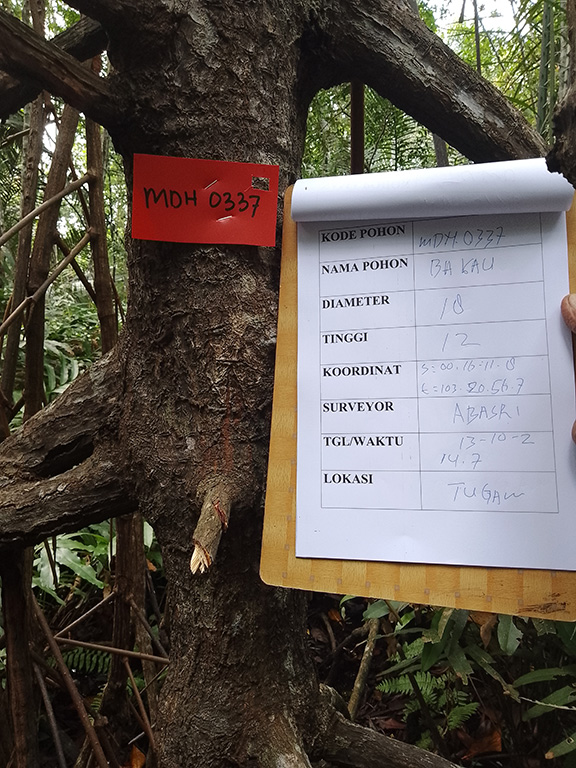 MDH 0337
KODE POHON MDH.0337
NAMA POHON BAKAU
DIAMETER 18
TINGGI 12
KOORDINAT S=00.16.11.8
E=103.20.56.7
SURVEYOR ABASRI
TGL/WAKTU 13-10-2
14.7
LOKASI